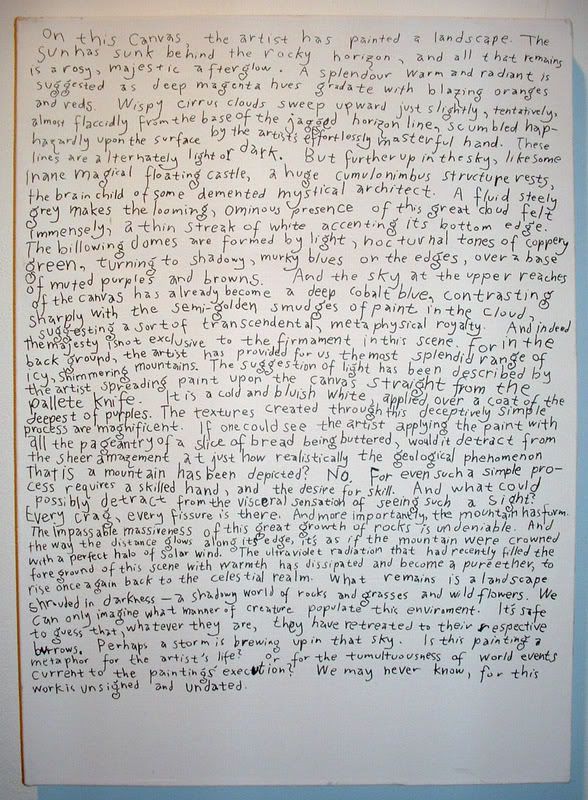 On this Canvas, the artist has painted a landscape. The
Sun has sunk behind the rocky horizon, and all that remains
is a rosy, majestic afterglow. A splendour warm and radiant is
suggested as deep magenta hues gradate with blazing oranges
and reds. Wispy cirrus clouds sweep upward just slightly, tentatively,
almost flaccidly from the base of the jagged horizon line, scumbled hap-
hazardly upon the surface by the artists effortlessly masterful hand. These
lines are alternately light or dark. But further up in the sky, like some
inane magical floating castle, a huge cumulonimbus structure rests,
the brain child of some demented mystical architect. A fluid steely
grey makes the looming, ominous presence of this great cloud felt
immensely, a thin streak of white accenting its bottom edge.
The billowing domes are formed by light, nocturnal tones of coppery
green, turning to shadowy, murky blues on the edges, over a base
of muted purples and browns. And the sky at the upper reaches
of the canvas has already become a deep cobalt blue, contrasting
sharply with the semi-golden smudges of paint in the cloud,
suggesting a sort of transcendental, metaphysical royalty. And indeed
the majesty is not exclusive to the firmament in this scene. For in the
back ground, the artist has provided for us the most splendid range of
icy, shimmering mountains. The suggestion of light has been described by
the artist spreading paint upon the canvas straight from the
pallete knife. It is a cold and bluish white, applied over a coat of the
deepest of purples. The textures created through this deceptively simple
process are magnificent. If one could see the artist applying the paint with
all the pageantry of a slice of bread being buttered, would it detract from
the sheer amazement at just how realistically the geological phenomenon
That is a mountain has been depicted? No. For even such a simple pro-
cess requires a skilled hand, and the desire for skill. And, what could
possibly detract from the visceral sensation of seeing such a sight?
Every crag, every fissure is there. And more importantly, the mountain has form.
The impassable massiveness of this great growth of rocks is undeniable. And
the way the distance glows along its edge, its as if the mountain were crowned
with a perfect halo of solar wind. The ultraviolet radiation that had recently filled the
foreground of this scene with warmth has dissipated and become a pure ether, to
rise once again back to the celestial realm. What remains is a landscape
shrouded in darkness – a shadowy world of rocks and grasses and wild flowers. We
can only imagine what manner of creature populate this enviroment. It's safe
to guess that, whatever they are, they have retreated to their respective
burrows. Perhaps a storm is brewing up in that sky. Is this painting a
metaphor for the artist's life? or for the tumultuousness of world events
current to the paintings' execution? We may never know, for this
work is unsigned and undated.